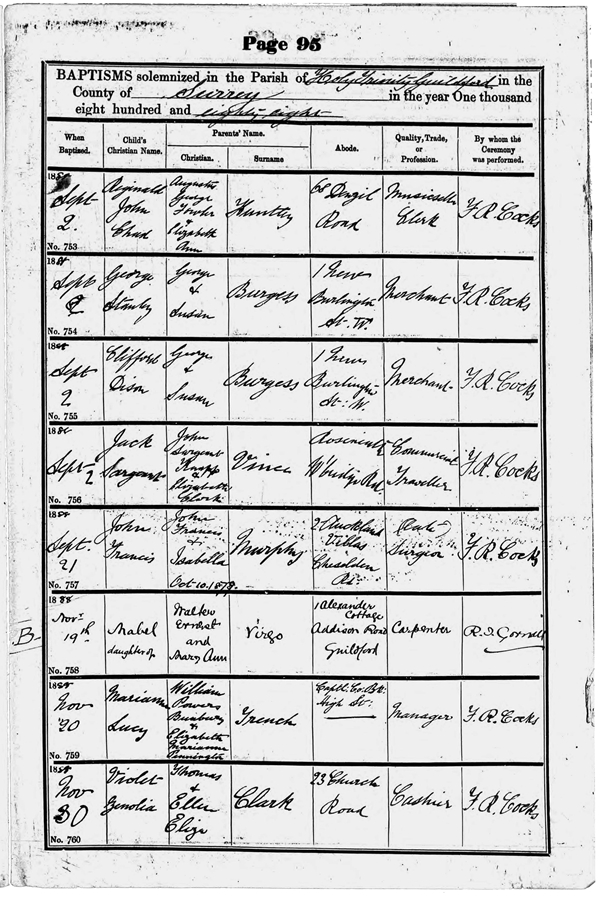 Page 95
BAPTISMS solemnized in the Parish of Holy Trinity Guildford in the
County of Surrey in the year One thousand
eight hundred and eighty eight
When Baptized.
Child's Christian Name.
Parents' Name.
Christian.
Surname
Abode.
Quality, Trade, or Profession.
By whom the Ceremony was performed.
1888
Sept
2.
No. 753
Reginald
John
Chad
Augustus
George
Fowler
&
Elizabeth
Ann
Huntley
68 Denzil
Road
Musicseller
Clerk
F. R. Cocks
1888
Sept
2
No. 754
George
Stanley
George
&
Susan
Burgess
1 New
Burlington
St. W.
Merchant
F. R. Cocks
1888
Sept
2
No. 755
Clifford
Dison
George
&
Susan
Burgess
1 New
Burlington
St: W.
Merchant
F. R. Cocks
1888
Sept 2
No. 756
Jack
Sargeant
John
Sargent
Knapp
&
Elizabeth
Clark
Vince
W'bridge Rd.
Commercial
Traveller
F. R. Cocks
1888
Sept.
21
No. 757
John
Francis
John
Francis
&
Isabella
Oct 10. 1878.
Murphy
2 Auckland
Villas
Cheselden
Rd.
(late)
Surgeon
F. R. Cocks
B
1888
Novr
19th
No. 758
Mabel
daughter of
Walter
Ernest
and
Mary Ann
Virgo
1 Alexander
Cottage
Addison Road
Guildford
Carpenter
1888
Nov
20
No. 759
Marianne
Lucy
William
Powers
Bunbury
&
Elizabeth
Marianne
Pennington
Trench
High St:
Manager
F. R. Cocks
1888
Nov
30
No. 760
Violet
Zenolia
Thomas
&
Ellen
Eliza
Clark
23 Church
Road
Cashier
F. R. Cocks